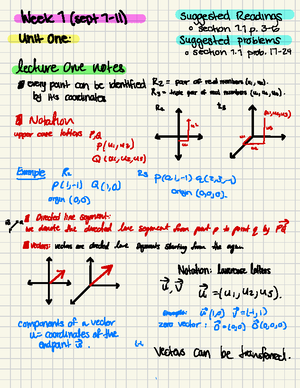 Week 1 (sept 7-11)
Suggested Readings
• section 1.1 p. 3-6
Unit One:
Suggested problems
• section 1.1 prob. 17-29
lecture One notes
every point can be identified
by its coordinates
R₂ = pair of real numbers (u₁, u₂).
R₃ = triple pair of real numbers (u₁, u₂, u₃).
Notation
upper case letters P,Q
P(u₁,u₂)
Q(u₁,u₂,u₃)
R₂
R₃
Example R₂
P(1,-1) Q(1,0)
origin (0,0)
R₃
origin (0,0,0).
Directed line segment:
we denote the directed line segment from point p to point q by PQ
Vectors: vectors are directed line segments starting from the origin.
Notation: lowercase letters
u⃗, v⃗
u⃗ = (u₁, u₂, u₃).
components of a vector
u = coordinates of the
endpoint u⃗.
Example: u⃗(1,0) v⃗=(-1,1)
zero vector: 0⃗=(0,0) 0⃗(0,0,0)
Vectors can be transferred.